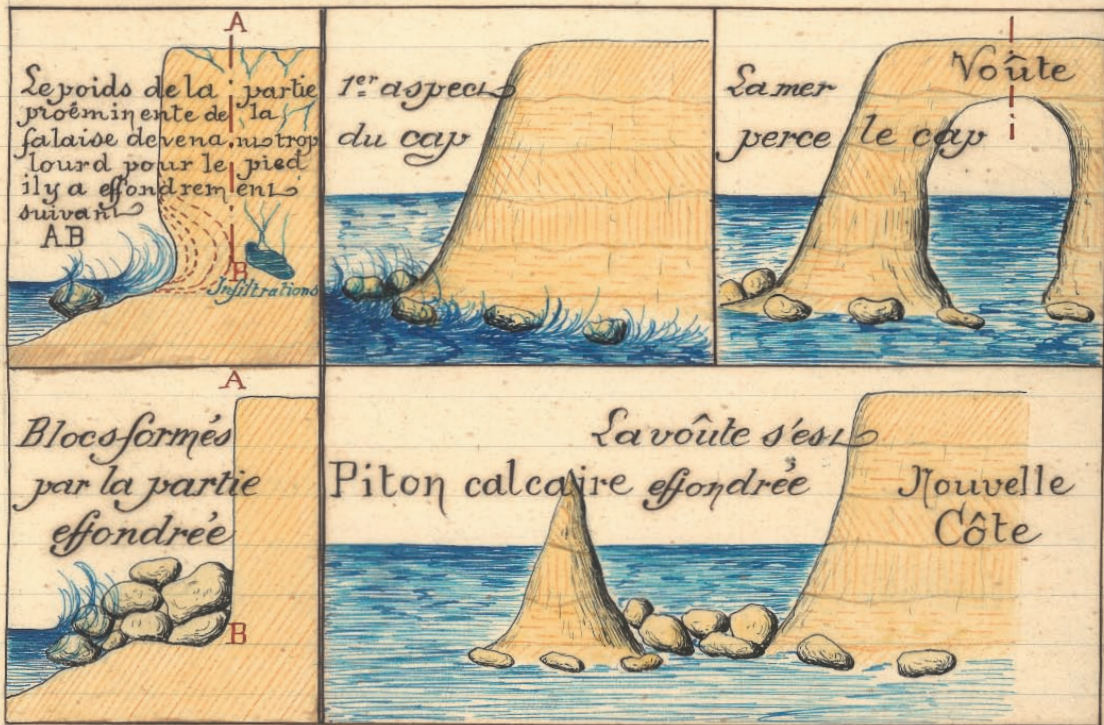 A
Le poids de la partie
proéminente de la
falaise devenant trop
lourd pour le pied
il y a effondrement
suivant
AB
B
Infiltrations
1er aspect
du cap
La mer
perce le cap
Voûte
A
Blocs formés
par la partie
effondrée
B
Piton calcaire
La voûte s'est
effondrée
Nouvelle
Côte